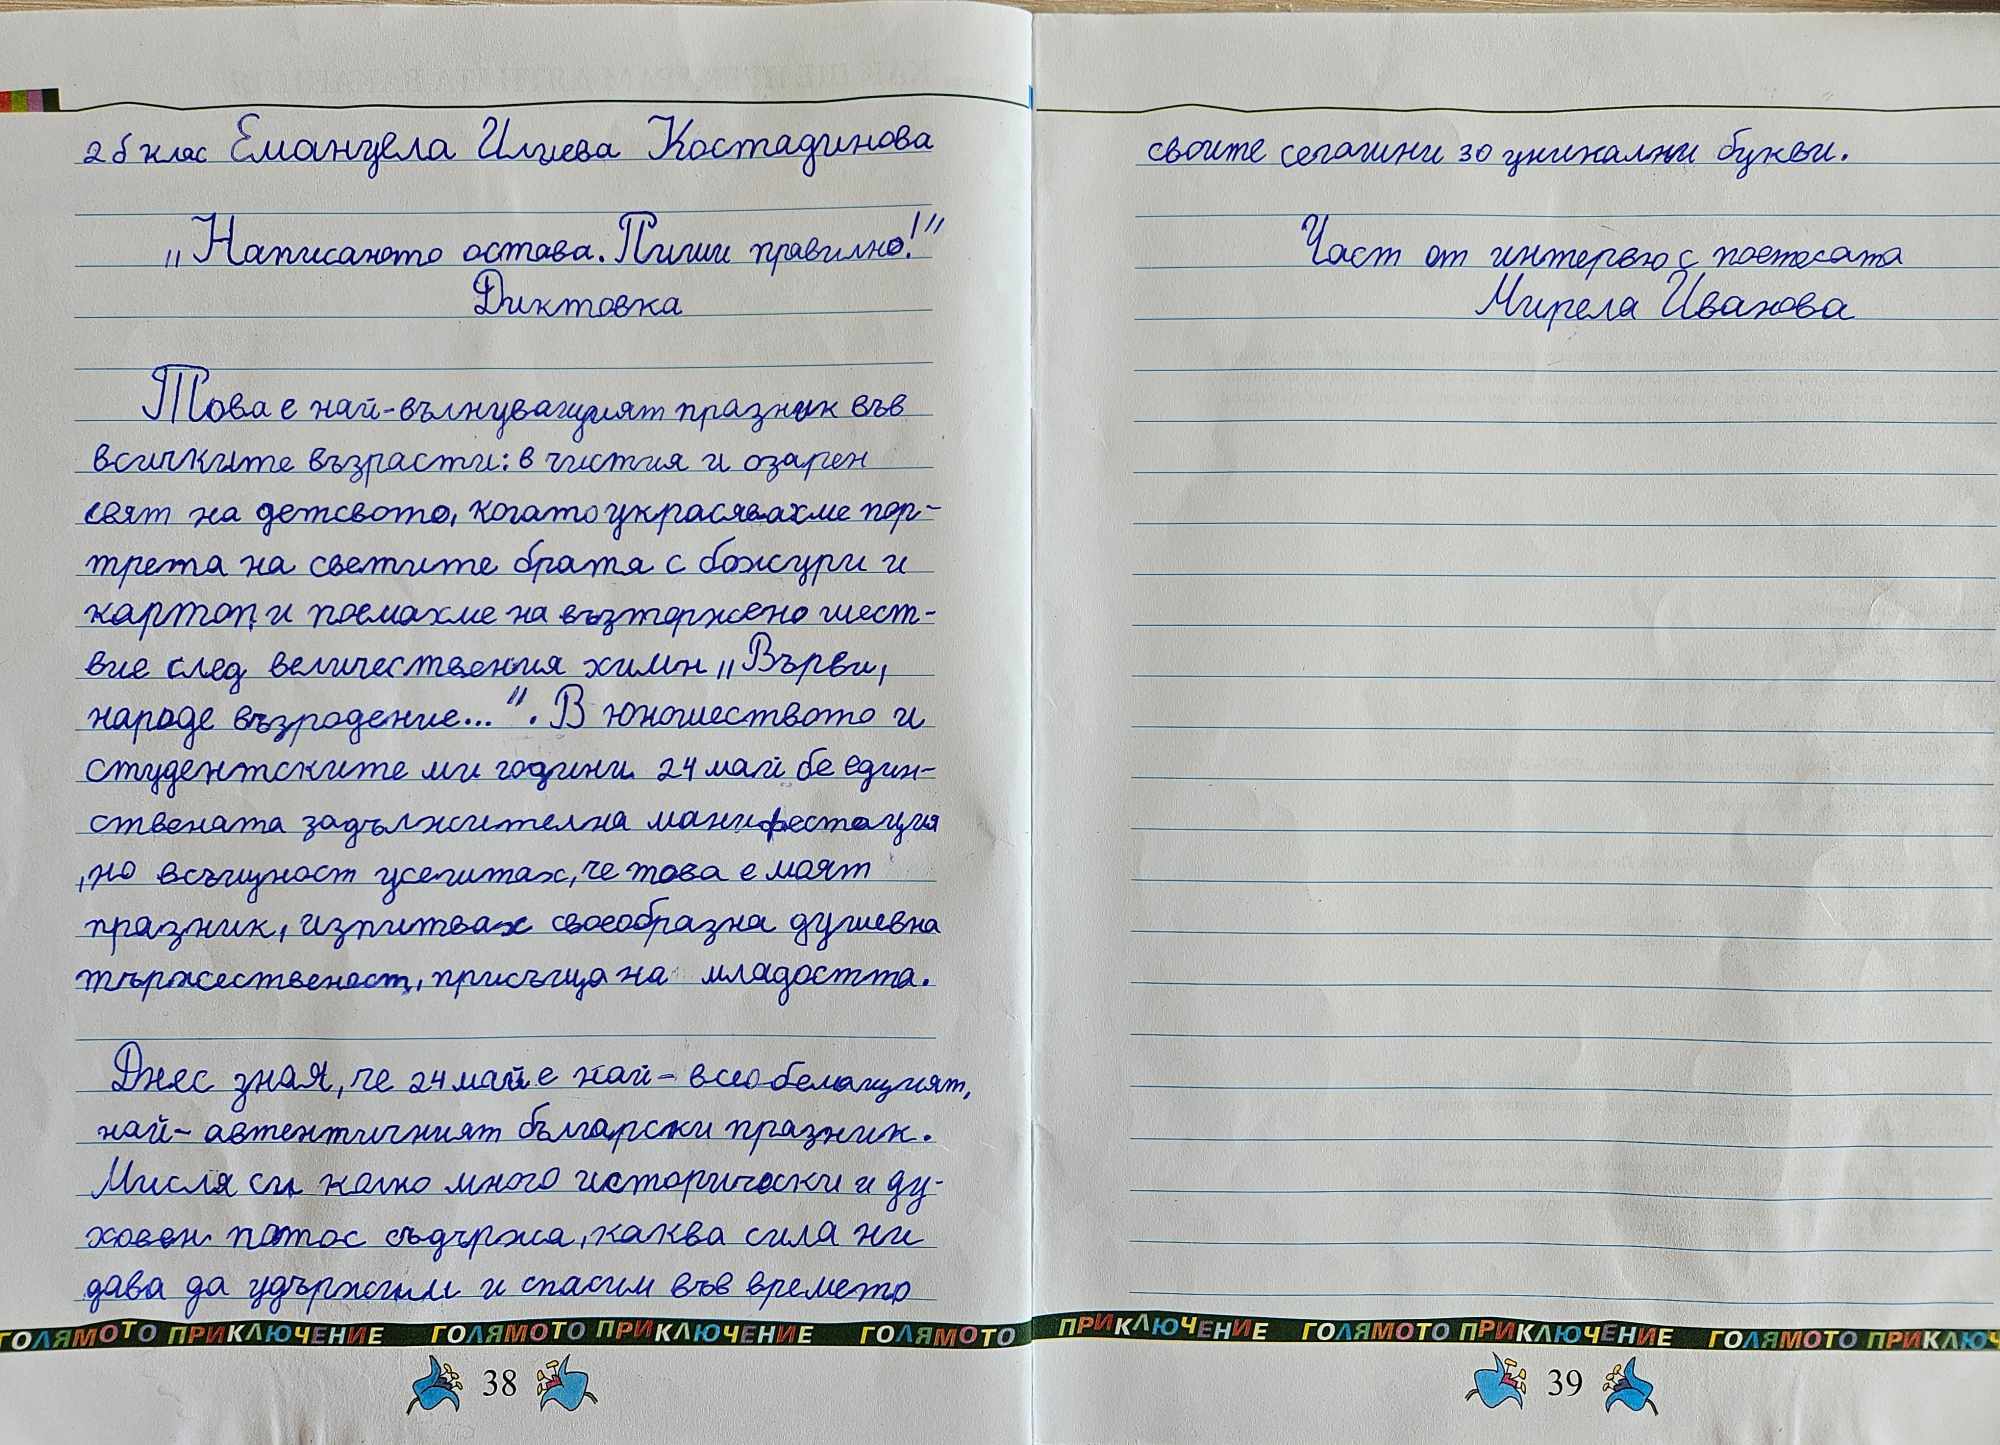 2 б клас Емануела Илиева Костадинова
„Написаното остава. Пиши правилно!"
Диктовка
Това е най-вълнуващият празник във
всичките възрасти: в чистия и озарен
свят на детсвото, когато украсявахме пор-
трета на светите братя с божури и
картоп, и поемахме на възторжено шест-
вие след величествения химн „Върви,
народе възродение...". В юношеството и
студентските ми години 24 май бе един-
ствената задължителна манифестация
,но всъщност усещтах, че това е моят
празник, изпитвах своеобразна душевна
тържественост, присъща на младостта.
Днес зная, че 24 май е най-всеобемащият,
най-автентичният български празник.
Мисля си колко много исторически и ду-
ховен патос съдържа, каква сила ни
дава да удържим и спасим във времето
своите сегашни 30 уникални букви.
Част от интервю с поетесата
Мирела Иванова
ГОЛЯМОТО ПРИКЛЮЧЕНИЕ ГОЛЯМОТО ПРИКЛЮЧЕНИЕ ГОЛЯМОТО ПРИКЛЮЧЕНИЕ ГОЛЯМОТО ПРИКЛЮЧЕНИЕ ГОЛЯМОТО ПРИКЛЮЧ
38
39